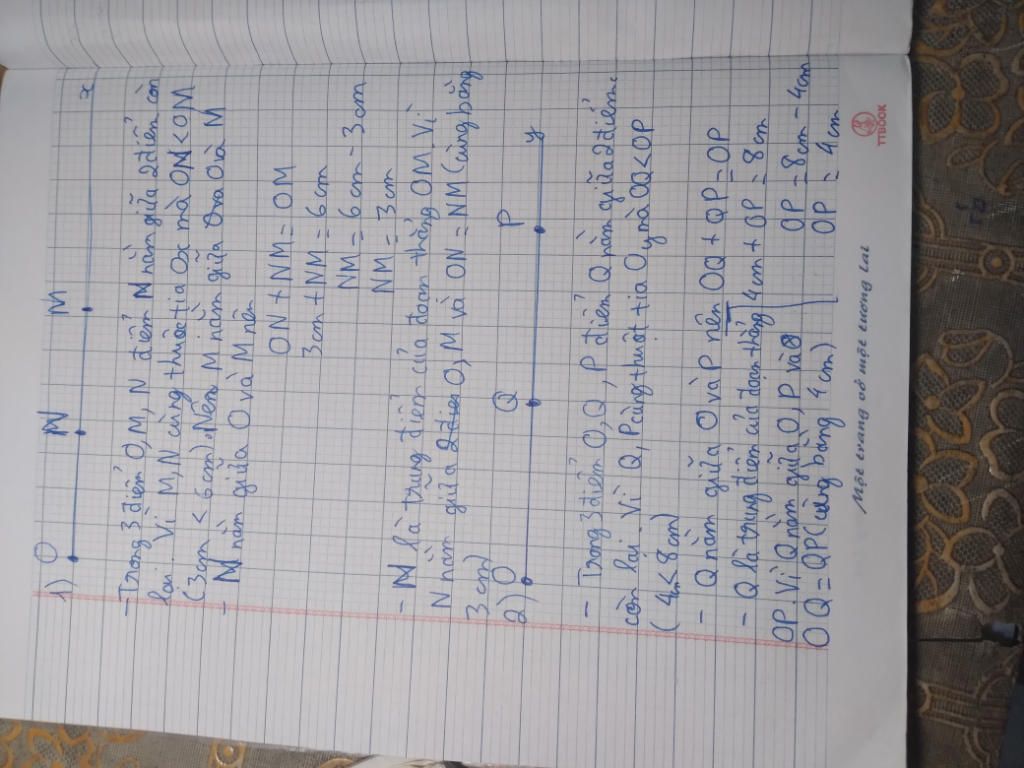 1) O N M x
- Trong 3 điểm O, M, N điểm N nằm giữa 2 điểm còn
lại. Vì M, N cùng thuộc tia Ox mà ON < OM
(3cm < 6cm). Nên M nằm giữa O và M
- N nằm giữa O và M nên
ON + NM = OM
3cm + NM = 6cm
NM = 6cm - 3cm
NM = 3cm
- N là trung điểm của đoạn thẳng OM. Vì
N nằm giữa 2 điểm O, M và ON = NM (cùng bằng
3cm)
2) O Q P y
- Trong 3 điểm O, Q, P điểm Q nằm giữa 2 điểm
còn lại. Vì Q, P cùng thuột tia Oy mà OQ < OP
(4 < 8cm)
- Q nằm giữa O và P nên OQ + QP = OP
- Q là trung điểm của đoạn thẳng 4cm + OP = 8cm
OP. Vì Q nằm giữa O, P và OP = 8cm - 4cm
OQ = QP (cùng bằng 4cm) OP = 4cm
Một trang vở một tương lai
TTBOOK